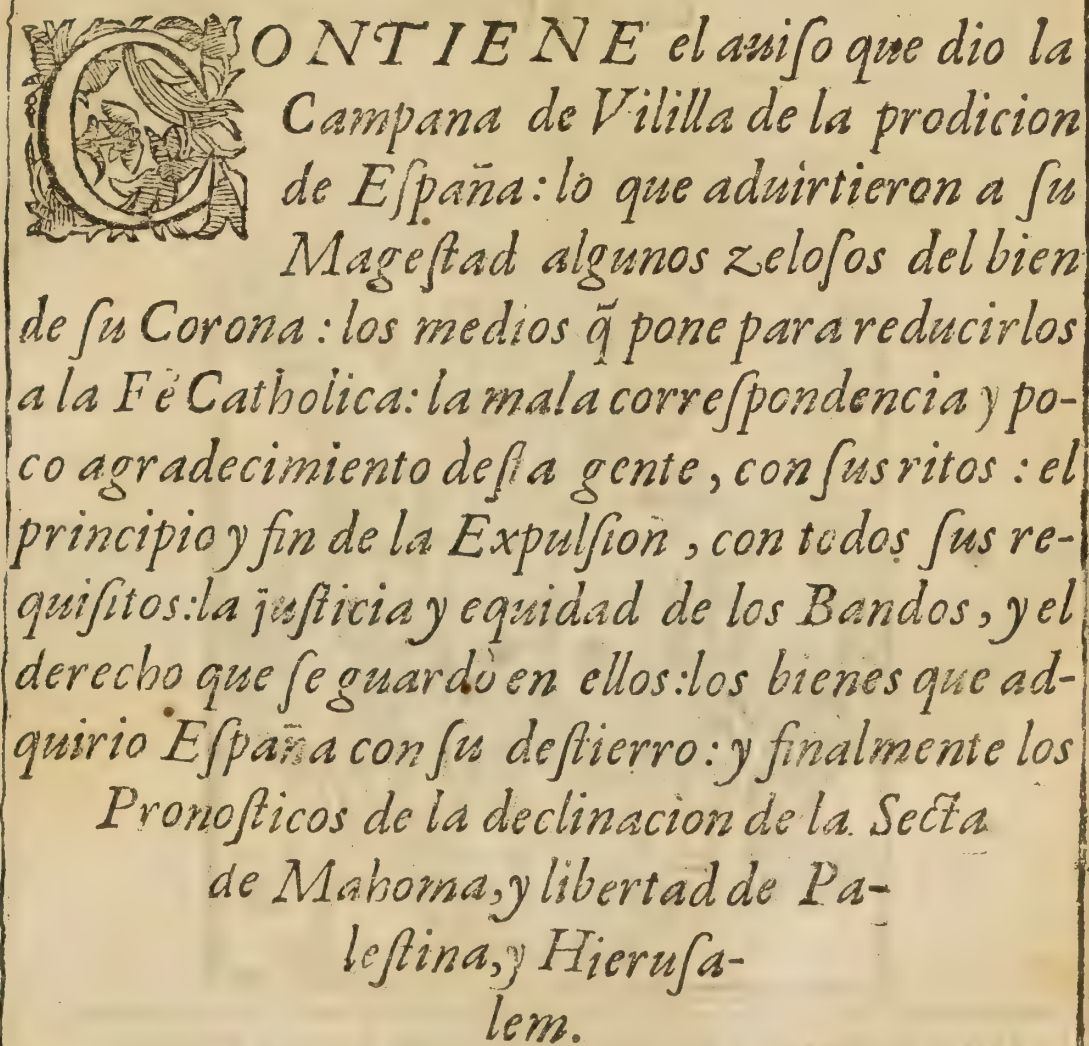 CONTIENE el auiſo que dio la
Campana de Vililla de la prodicion
de Eſpaña: lo que aduirtieron a ſu
Mageſtad algunos zeloſos del bien
de ſu Corona: los medios q̃ pone para reducirlos
a la Fè Catholica: la mala correſpondencia y po-
co agradecimiento deſta gente, con ſus ritos: el
principio y fin de la Expulſion, con todos ſus re-
quiſitos: la juſticia y equidad de los Bandos, y el
derecho que ſe guardò en ellos: los bienes que ad-
quirio Eſpaña con ſu deſtierro: y finalmente los
Pronoſticos de la declinacion de la Secta
de Mahoma, y libertad de Pa-
leſtina, y Hieruſa-
lem.